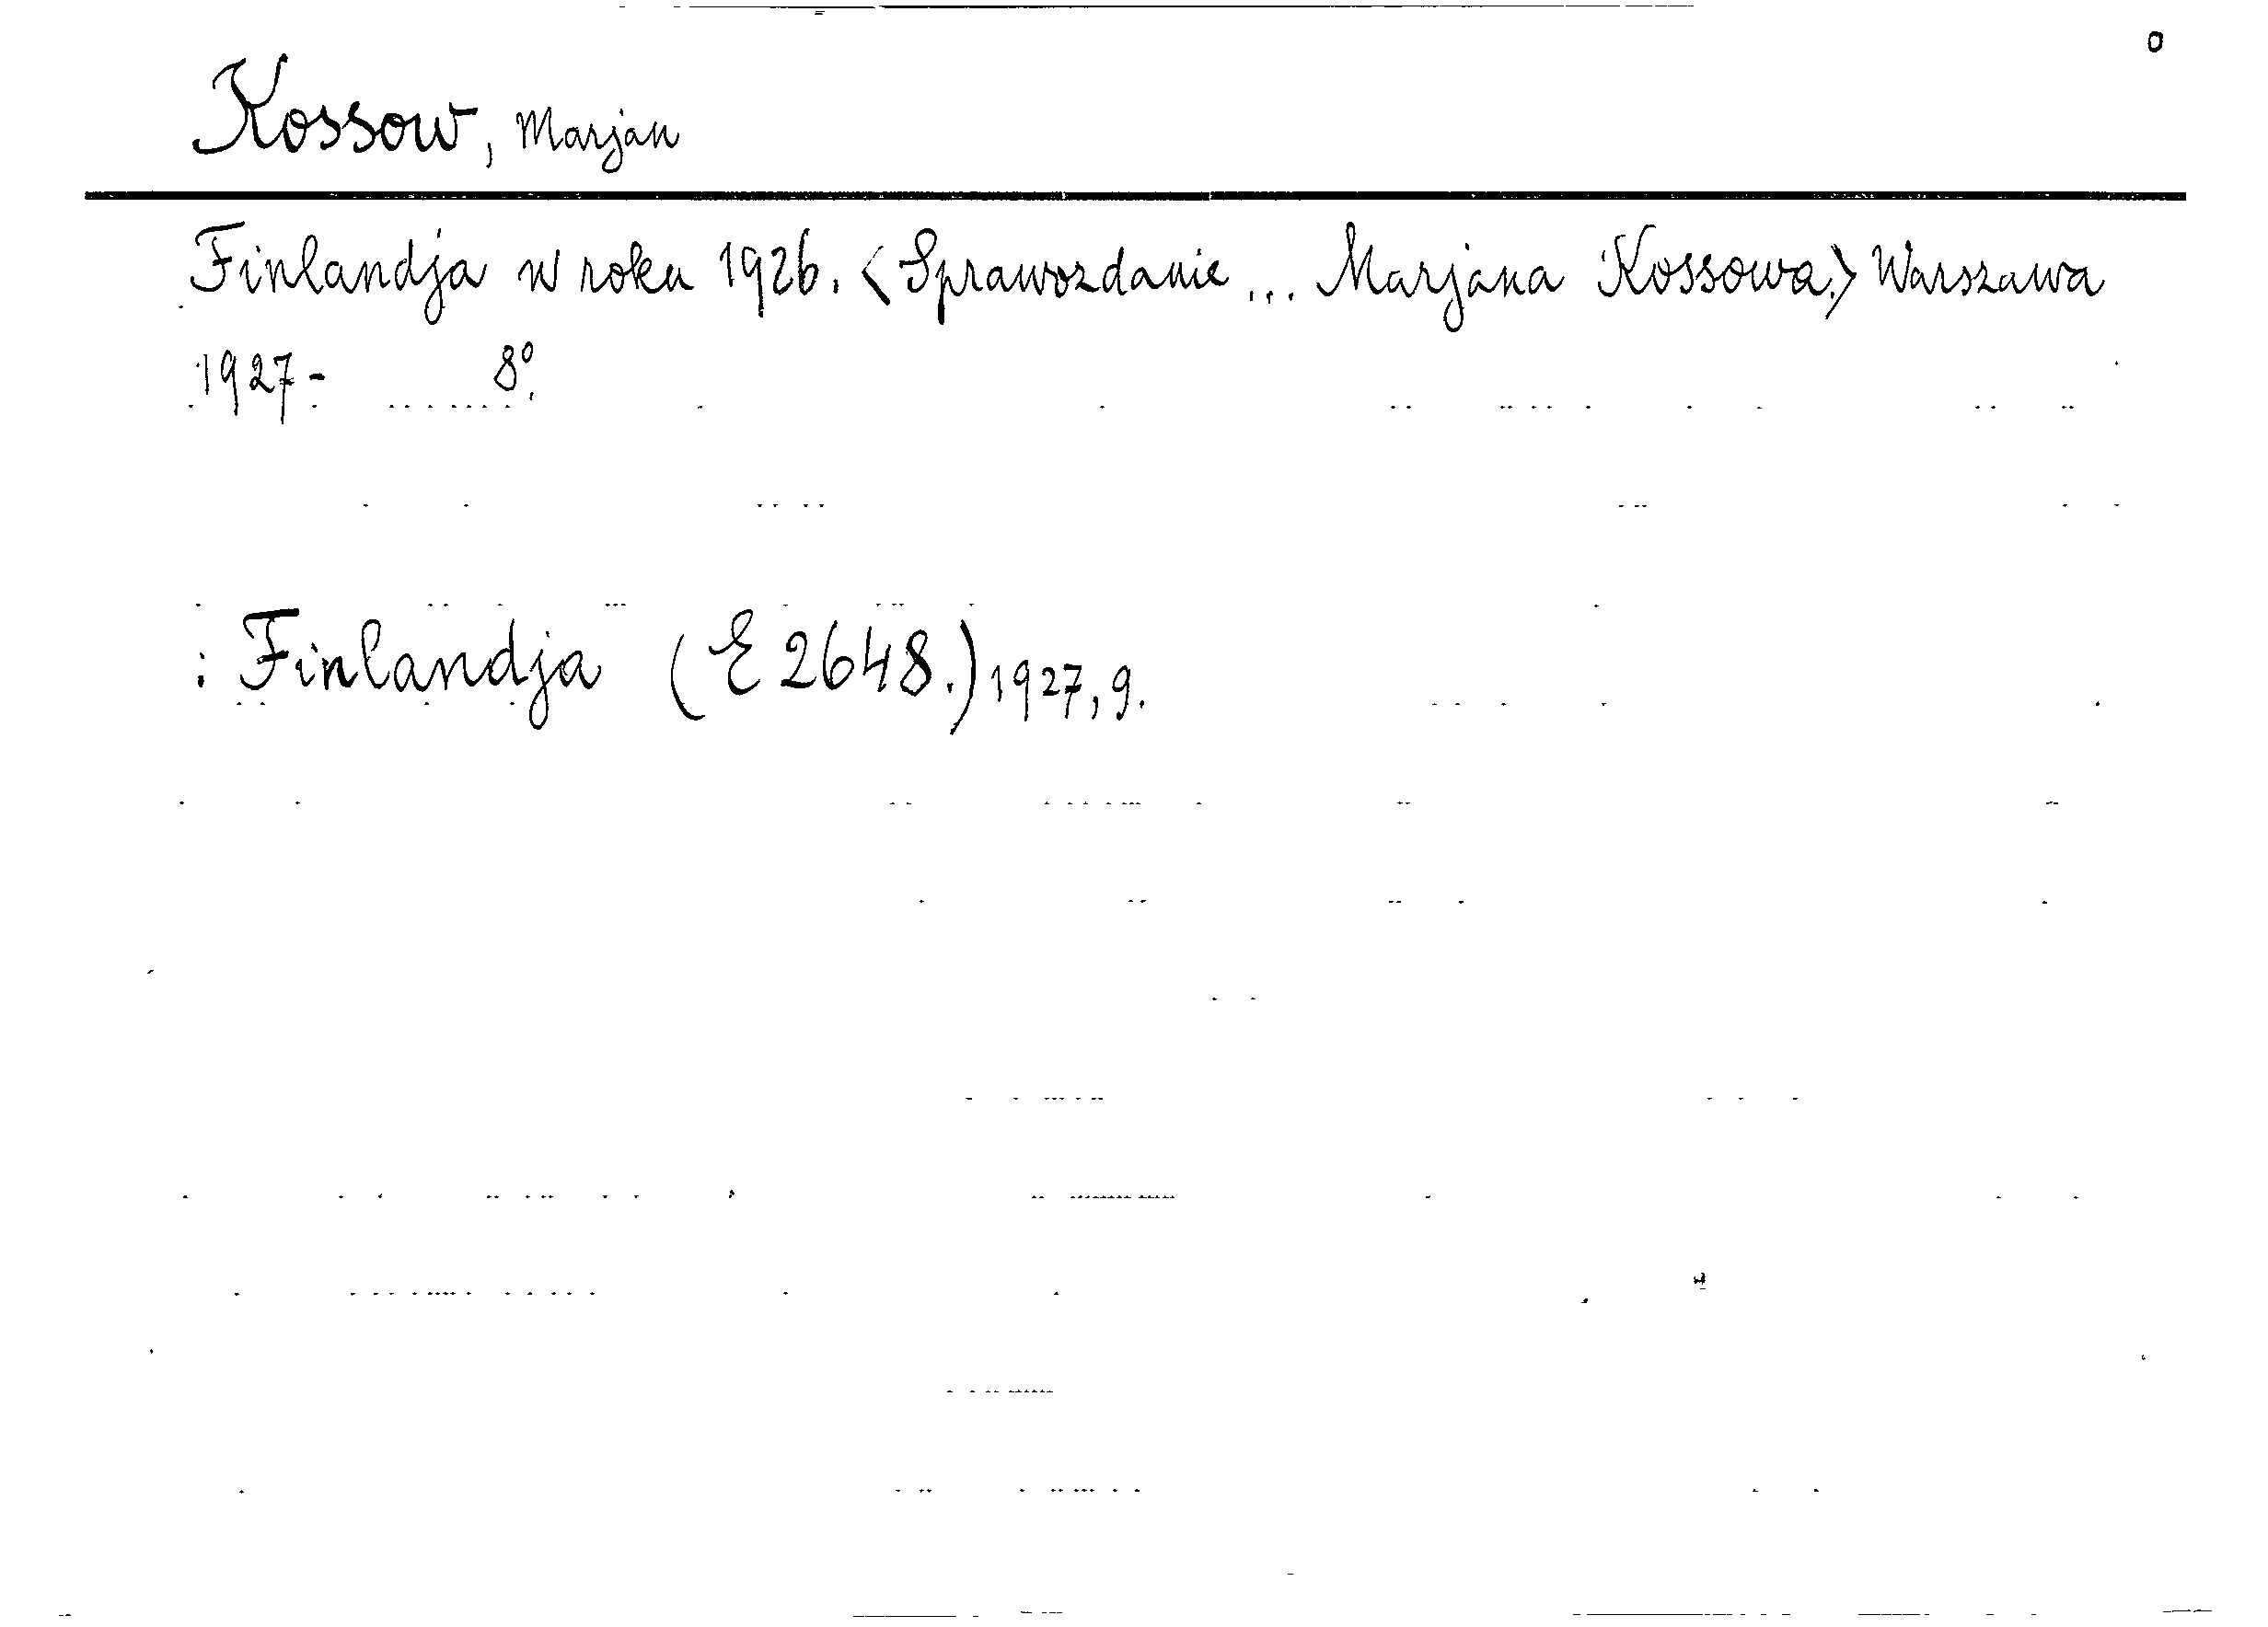 o
Kossow, Marjan
Finlandja w roku 1926. <Sprawozdanie... Marjana Kossowa.> Warszawa
1927- 8°.
: Finlandja (E 2648.) 1927, 9.